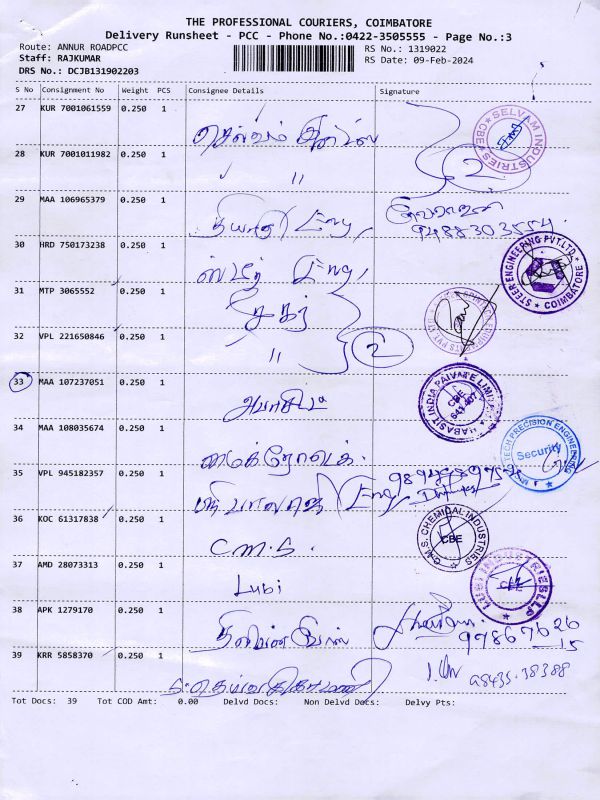 THE PROFESSIONAL COURIERS, COIMBATORE
Delivery Runsheet - PCC - Phone No.:0422-3505555 - Page No.:3
Route: ANNUR ROADPCC
RS No.: 1319022
Staff: RAJKUMAR
RS Date: 09-Feb-2024
DRS No.: DCJB131902203
S No Consignment No Weight PCS Consignee Details Signature
27 KUR 7001061559 0.250 1 செல்வம் SELVAM INDUSTRIES CBE
28 KUR 7001011982 0.250 1 " 2
29 MAA 106965379 0.250 1 தியாகு Eng,
30 HRD 750173238 0.250 1 ஸ்டீர் Eng, STEER ENGINEERING PVT LTD COIMBATORE
31 MTP 3065552 0.250 1
32 VPL 221650846 0.250 1 " 2
33 MAA 107237051 0.250 1 HABASIT INDIA PRIVATE LIMITED CBE 641 407
34 MAA 108035674 0.250 1 PRECISION ENGINEERING Security
35 VPL 945182357 0.250 1 Eng
36 KOC 61317838 0.250 1 C.M.S. C.M.S. CHEMICAL INDUSTRIES CBE
37 AMD 28073313 0.250 1 Lubi LUBI INDUSTRIES LLP CBE
38 APK 1279170 0.250 1 97867626
15
39 KRR 5858370 0.250 1 98435-38388
Tot Docs: 39 Tot COD Amt: 0.00 Delvd Docs: Non Delvd Docs: Delvy Pts: